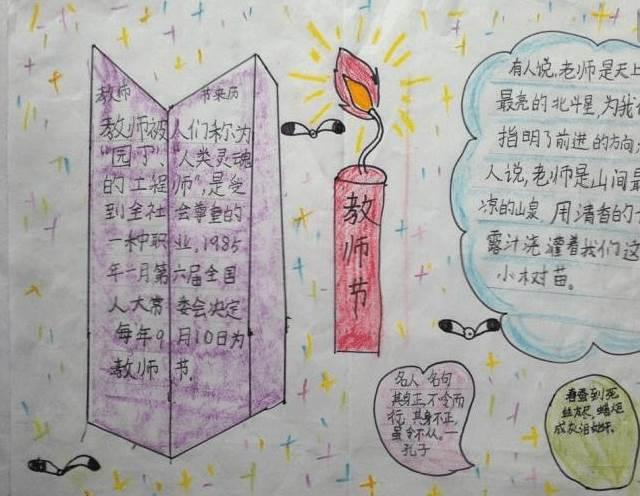 教师 节来历
教师被人们称为
"园丁"、"人类灵魂
的工程师",是受
到全社会尊重的
一种职业,1985
年一月第六届全国
人大常委会决定
每年9月10日为
教师节.
教师节
有人说,老师是天上
最亮的北斗星,为我
指明了前进的方向
人说,老师是山间
凉的山泉 用清香的一
露汁浇灌着我们这
小树苗。
名人名句
其身正,不令而
行,其身不正,
虽令不从。一
孔子
春蚕到死
丝方尽 蜡炬
成灰泪始干.